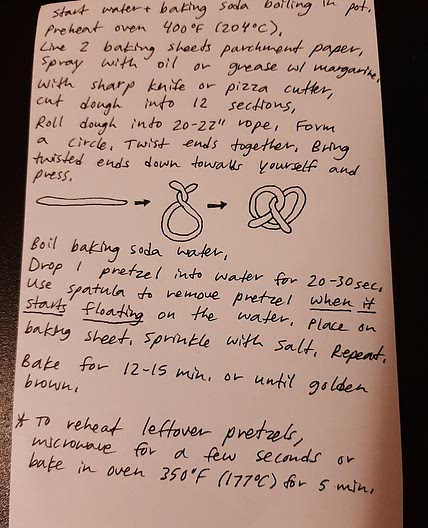 Start water + baking soda boiling in pot.
Preheat oven 400°F (204°C).
Line 2 baking sheets parchment paper,
Spray with oil or grease w/ margarine,
With sharp knife or pizza cutter,
cut dough into 12 sections,
Roll dough into 20-22" rope, Form
a circle, Twist ends together, Bring
twisted ends down towards yourself and
press.
Boil baking soda water,
Drop 1 pretzel into water for 20-30 sec,
Use spatula to remove pretzel when it
starts floating on the water, Place on
baking sheet, Sprinkle with salt, Repeat,
Bake for 12-15 min, or until golden
brown,
* To reheat leftover pretzels,
microwave for a few seconds or
bake in oven 350°F (177°C) for 5 min,